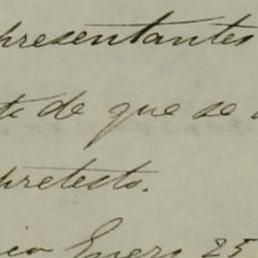 presentantes
de que se
pretesto.
Enero 25